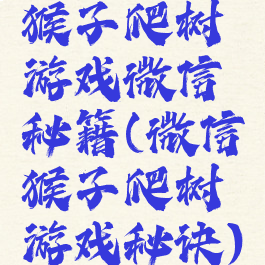 猴子爬树
游戏微信
秘籍(微信
猴子爬树
游戏秘诀)